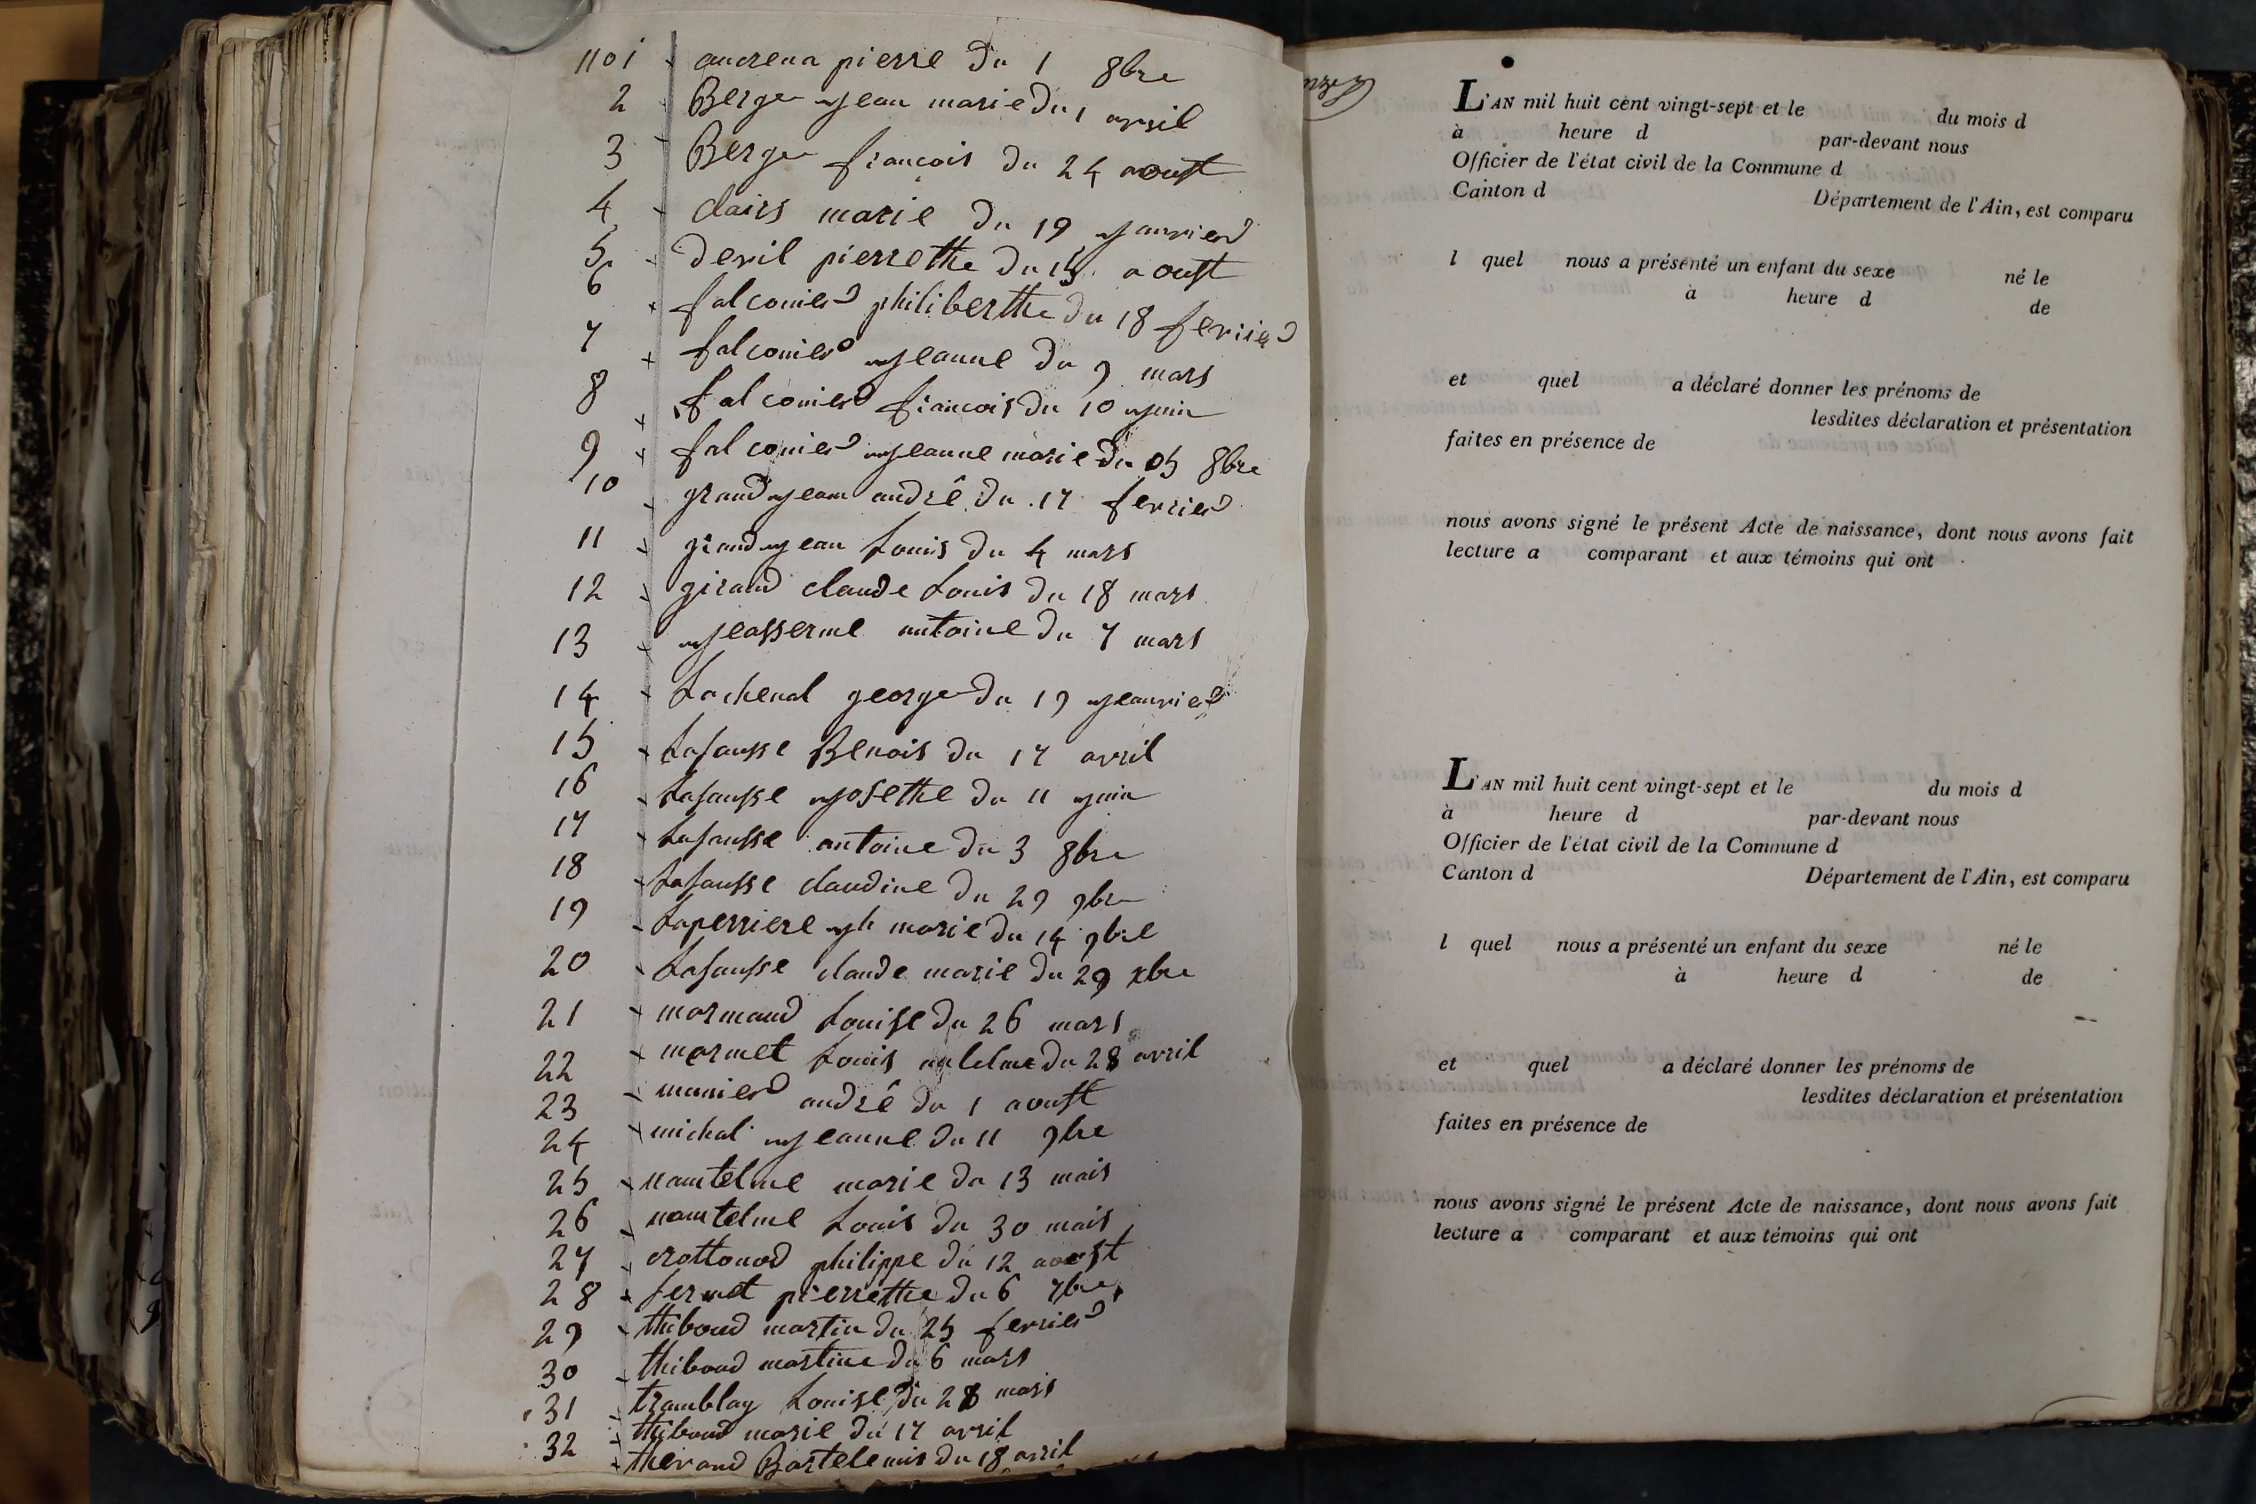 1101 andrena pierre Du 1 8bre
2 Berger jean marie du 1 avril
3 Berger francois du 24 aoust
4 clairs marie du 19 janvier
5 devil pierrethe du 15 aoust
6 falconier philiberthe du 18 fevrier
7 falconier jeanne du 9 mars
8 falconier francois du 10 juin
9 falconier jeanne marie du 05 8bre
10 grandjean andré du 17 fevrier
11 grandjean Louis du 4 mars
12 giraud claude Louis du 18 mars
13 jeasserme antoine du 7 mars
14 Lachenal george du 19 jeanvier
15 Lafausse Benois du 17 avril
16 Lafausse josethe du 11 juin
17 Lafausse antoine du 3 8bre
18 Lafausse claudine du 29 9bre
19 Laperriere jh marie du 14 9bre
20 Lafausse claude marie du 29 xbre
21 mormand Louise du 26 mars
22 mormet Louis du 28 avril
23 munier andré du 1 aoust
24 michal jeanne du 11 9bre
25 nantelme marie du 13 mais
26 nantelme Louis du 30 mais
27 crottonod philippe du 12 aoust
28 fernet pierrethe du 6 7bre
29 thiboud martin du 25 fevrier
30 thiboud martine du 6 mars
31 tramblay Louise du 28 mars
32 thiboud marie du 17 avril
thevand Bartelemis du 18 avril
L'AN mil huit cent vingt-sept et le du mois d
à heure d par-devant nous
Officier de l'état civil de la Commune d
Canton d Département de l'Ain, est comparu
l quel nous a présenté un enfant du sexe né le
à heure d de
et quel a déclaré donner les prénoms de
lesdites déclaration et présentation
faites en présence de
nous avons signé le présent Acte de naissance, dont nous avons fait
lecture a comparant et aux témoins qui ont
L'AN mil huit cent vingt-sept et le du mois d
à heure d par-devant nous
Officier de l'état civil de la Commune d
Canton d Département de l'Ain, est comparu
l quel nous a présenté un enfant du sexe né le
à heure d de
et quel a déclaré donner les prénoms de
lesdites déclaration et présentation
faites en présence de
nous avons signé le présent Acte de naissance, dont nous avons fait
lecture a comparant et aux témoins qui ont